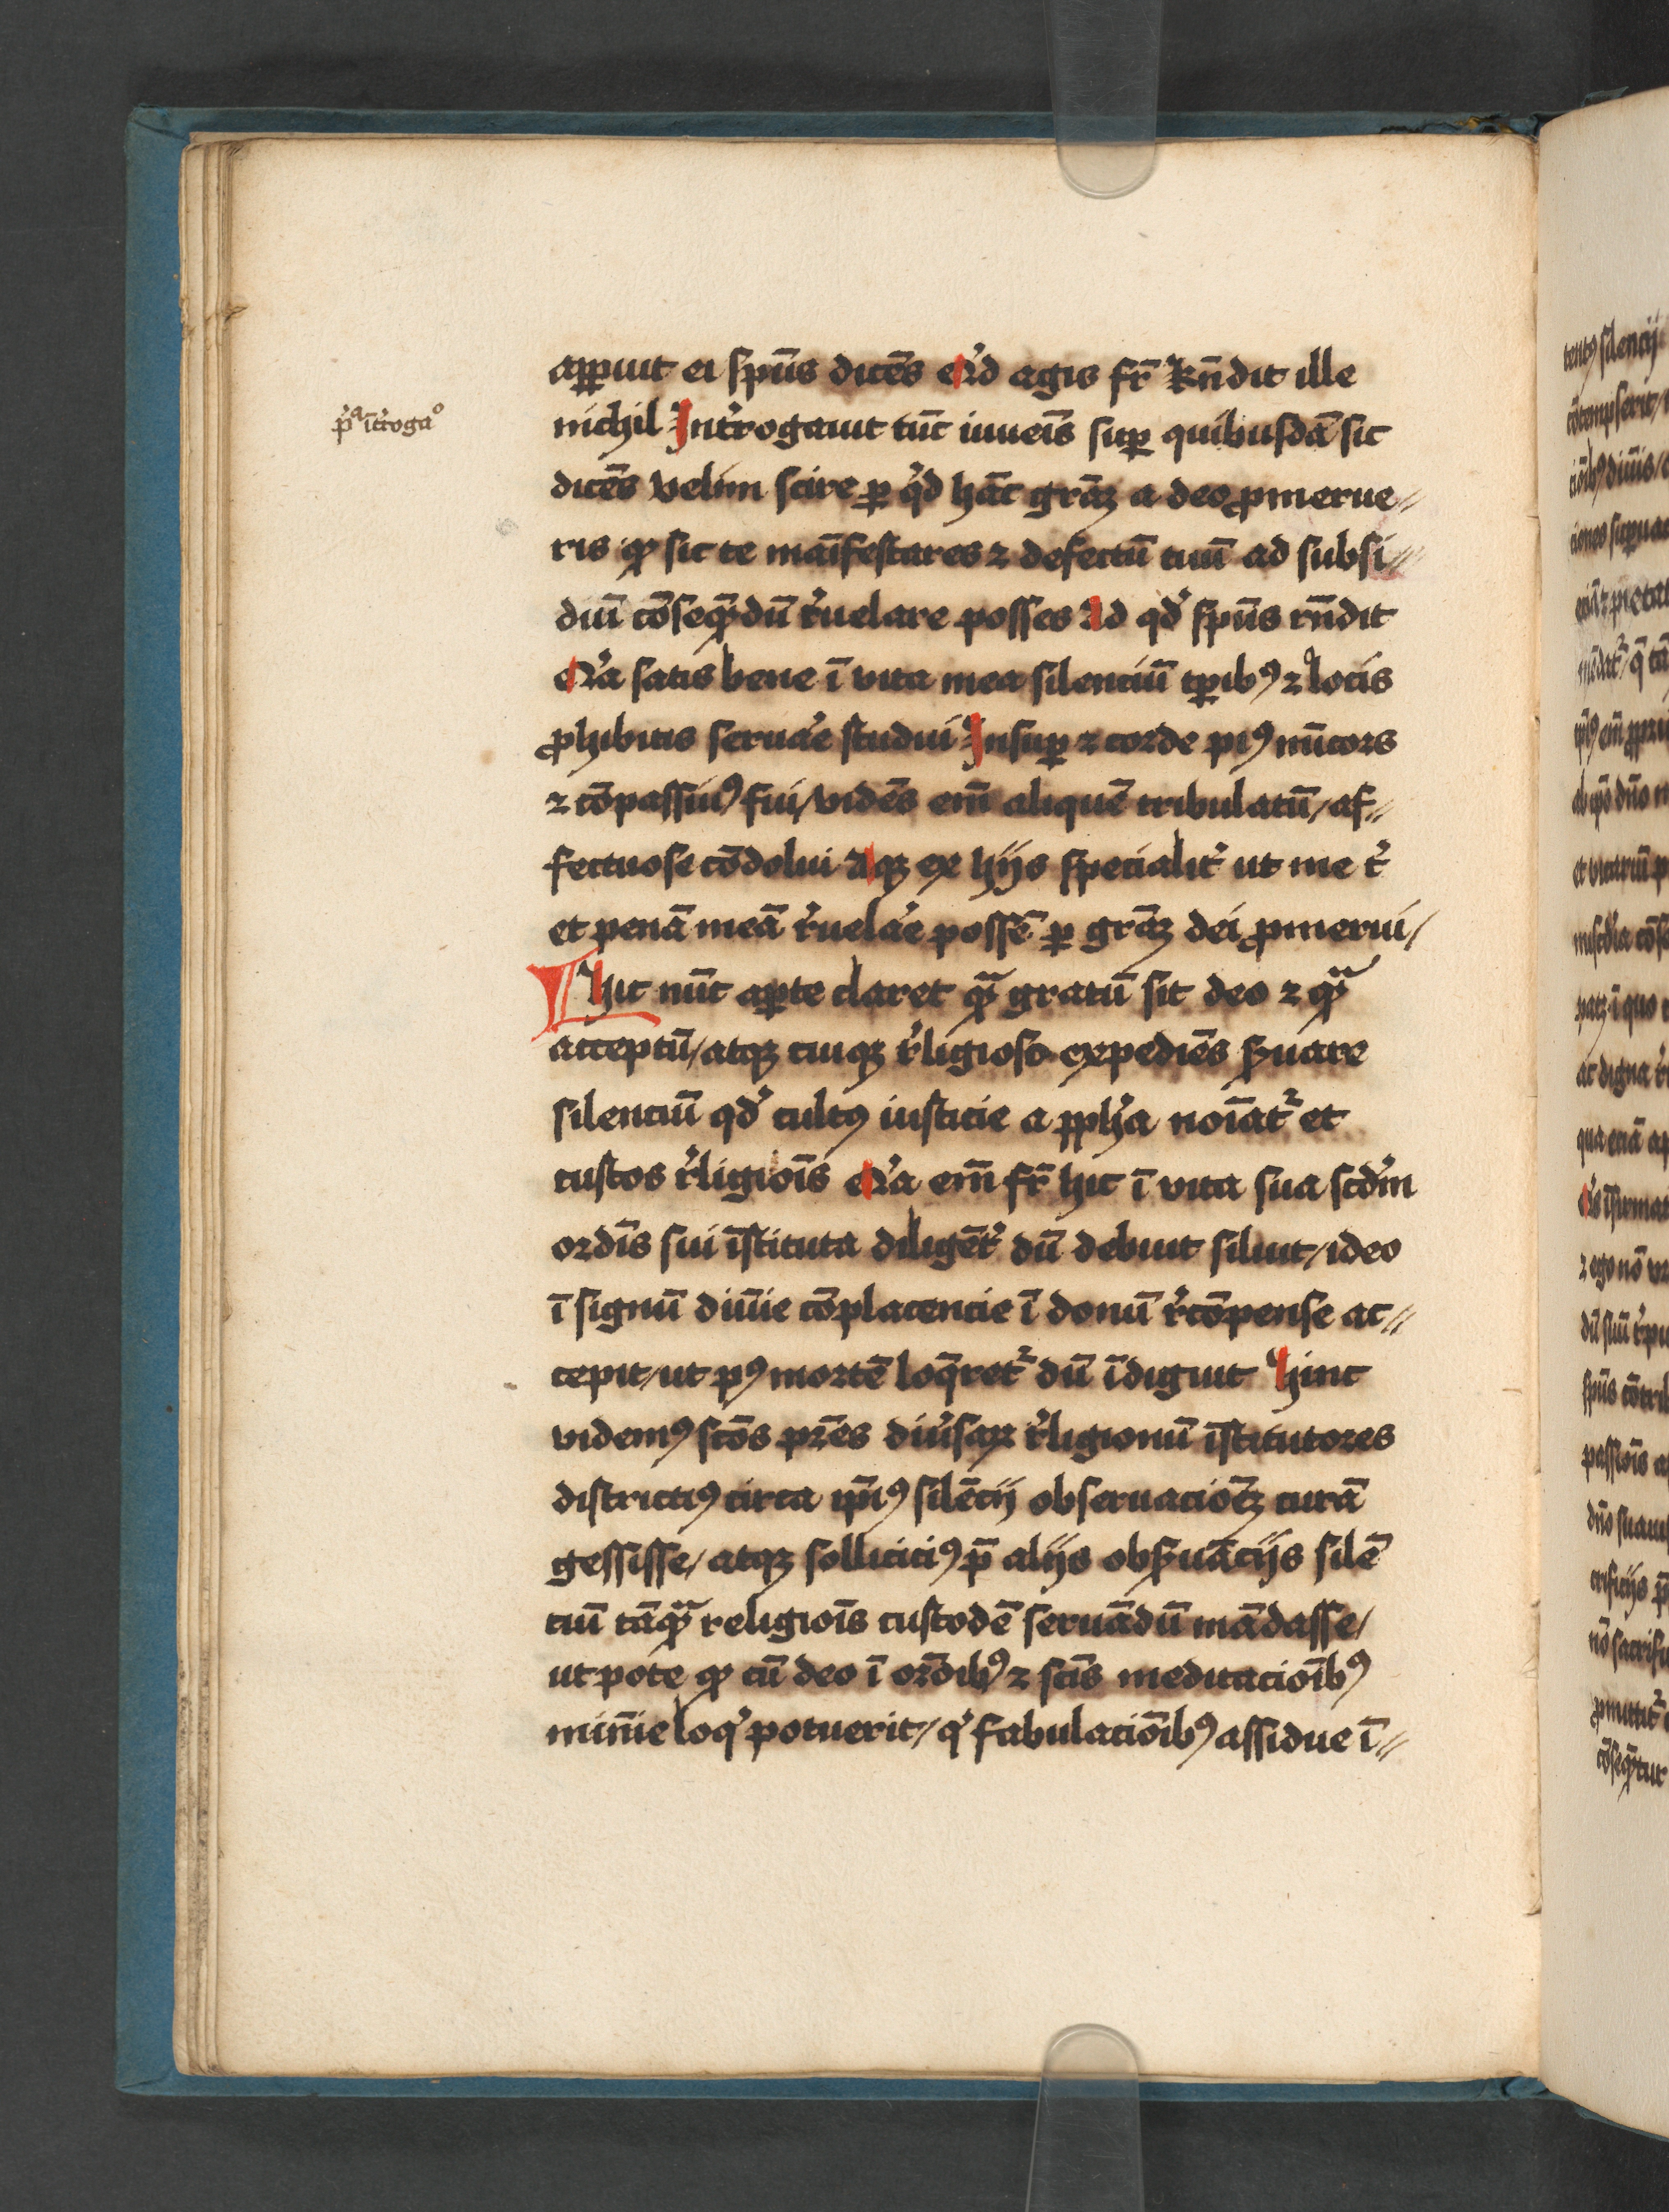 p̓ᵃ īt̓rogaᵒ
aꝑuit ei sp̄us dicēs Q̓d agis fr̄ Rn̄dit ille
nichil Int̓rogauit tūc iuueīs suꝑ quibusdā sic
dicēs Velim scire ꝑ q̓d hāc grāꝫ a deo ꝓmerue⸗
ris ꝙ sic te maīfestares ⁊ defectū tuū ad subsi⸗
diū cōseq̄ndū r̓uelare posses Ad qd̓ sp̄us rn̄dit
Q̓a satis bene ī vita mea silenciū tꝑibꝰ ⁊ locis
ꝓhibitis serua̓e studui Insuꝑ ⁊ corde piꝰ mīcors
⁊ cōpassiuꝰ fui/ vidēs em̄ aliquē tribulatū/ af⸗
fectuose cōdolui Aqꝫ ex hijs specialit̓ ut me t̓
et penā meā r̓uela̓e possē ꝑ grāꝫ dei ꝓmerui/
Hic nūc aꝑte claret qᷓ gratū sit deo ⁊ qᷓ
acceptū/ atqꝫ cuiqꝫ r̓ligioso expediēs ẜuare
silenciū qd̓ cultꝰ iusticie a ꝓph̓a noīat᷑ et
custos r̓ligiōis Q̓a em̄ fr̄ hic ī vita sua scd̓m
ordīs sui īstituta diligēt̓ dū debuit siluit/ ideo
ī signū diuīe cōplacencie ī donū r̓cōpense ac⸗
cepit/ ut pꝰ mortē loq̄ret᷑ dū īdiguit Hinc
videmꝰ scōs pr̄es diu̓saꝝ r̓ligionū īstitutores
districtiꝰ circa ip̄iꝰ silēcij obseruaciōeꝫ curā
gessisse/ atqꝫ sollicitiꝰ p̄ alijs obẜuācijs silē
ciū tāqᷓ religiōis custodē seruādū mādasse/
ut pote ꝙ cū deo ī or̄oībꝰ ⁊ scīs meditaciōibꝰ
minīe loq̓ potuerit/ q̓ fabulaciōibꝰ assidue ī⸗